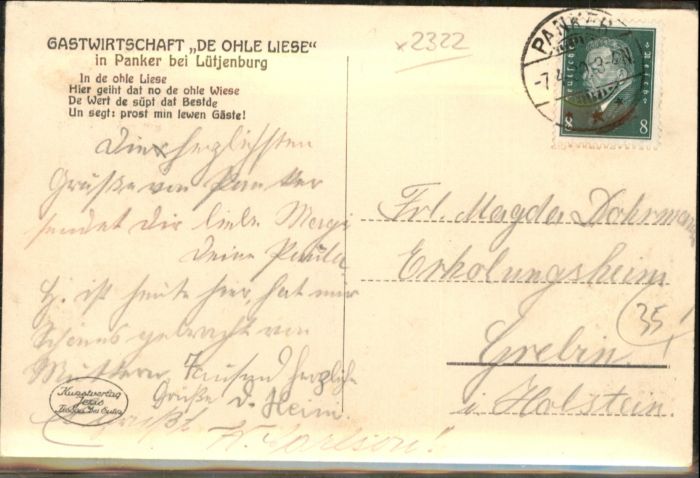 GASTWIRTSCHAFT „DE OHLE LIESE“
in Panker bei Lütjenburg
In de ohle Liese
Hier geiht dat no de ohle Wiese
De Wert de süpt dat Bestde
Un segt: prost min lewen Gäste!
x2322
PANKER
Deutsches Reich
8 8
Die herzlichsten
Grüße von Panker
sendet Dir liebe
Deine Paula
H. ist heute hier, hat mir
Schönes gebracht von
Muttern, Tausend herzliche
Grüße v. Heim.
Frl. Magda Dohrmann
Erholungsheim
Grebin
i Holstein.
35
Kunstverlag